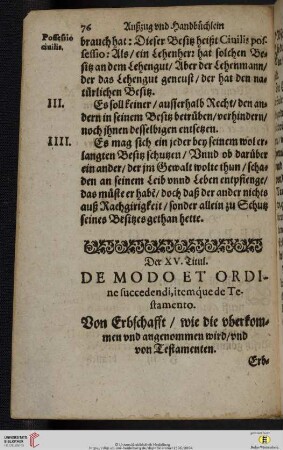 76 Außzug vnd Handbüchlein
Possessio brauch hat: Dieser Besitz heißt Ciuilis pos-
ciuilis. sessio: Als/ ein Lehenher: hat solchen Be-
sitz an dem Lehengut/ Aber der Lehenmann/
der das Lehengut geneust/ der hat den na-
türlichen Besitz.
III. Es soll keiner/ ausserhalb Recht/ den an-
dern in seinem Besitz betrüben/ verhindern/
noch ihnen desselbigen entsetzen.
IIII. Es mag sich ein jeder bey seinem wol er-
langten Besitz schützen/ Vnnd ob darüber
ein ander/ der jm Gewalt wolte thun/ scha-
den an seinem Leib vnnd Leben entpfienge/
das müste er habē/ doch daß der ander nichts
auß Rachgirigkeit/ sonder allein zu Schutz
seines Besitzes gethan hette.
Der XV. Titul.
DE MODO ET ORDI-
ne succedendi, itemque de Te-
stamento.
Von Erbschafft/ wie die vberkom-
men vnd angenommen wird/ vnd
von Testamenten.
Erb-